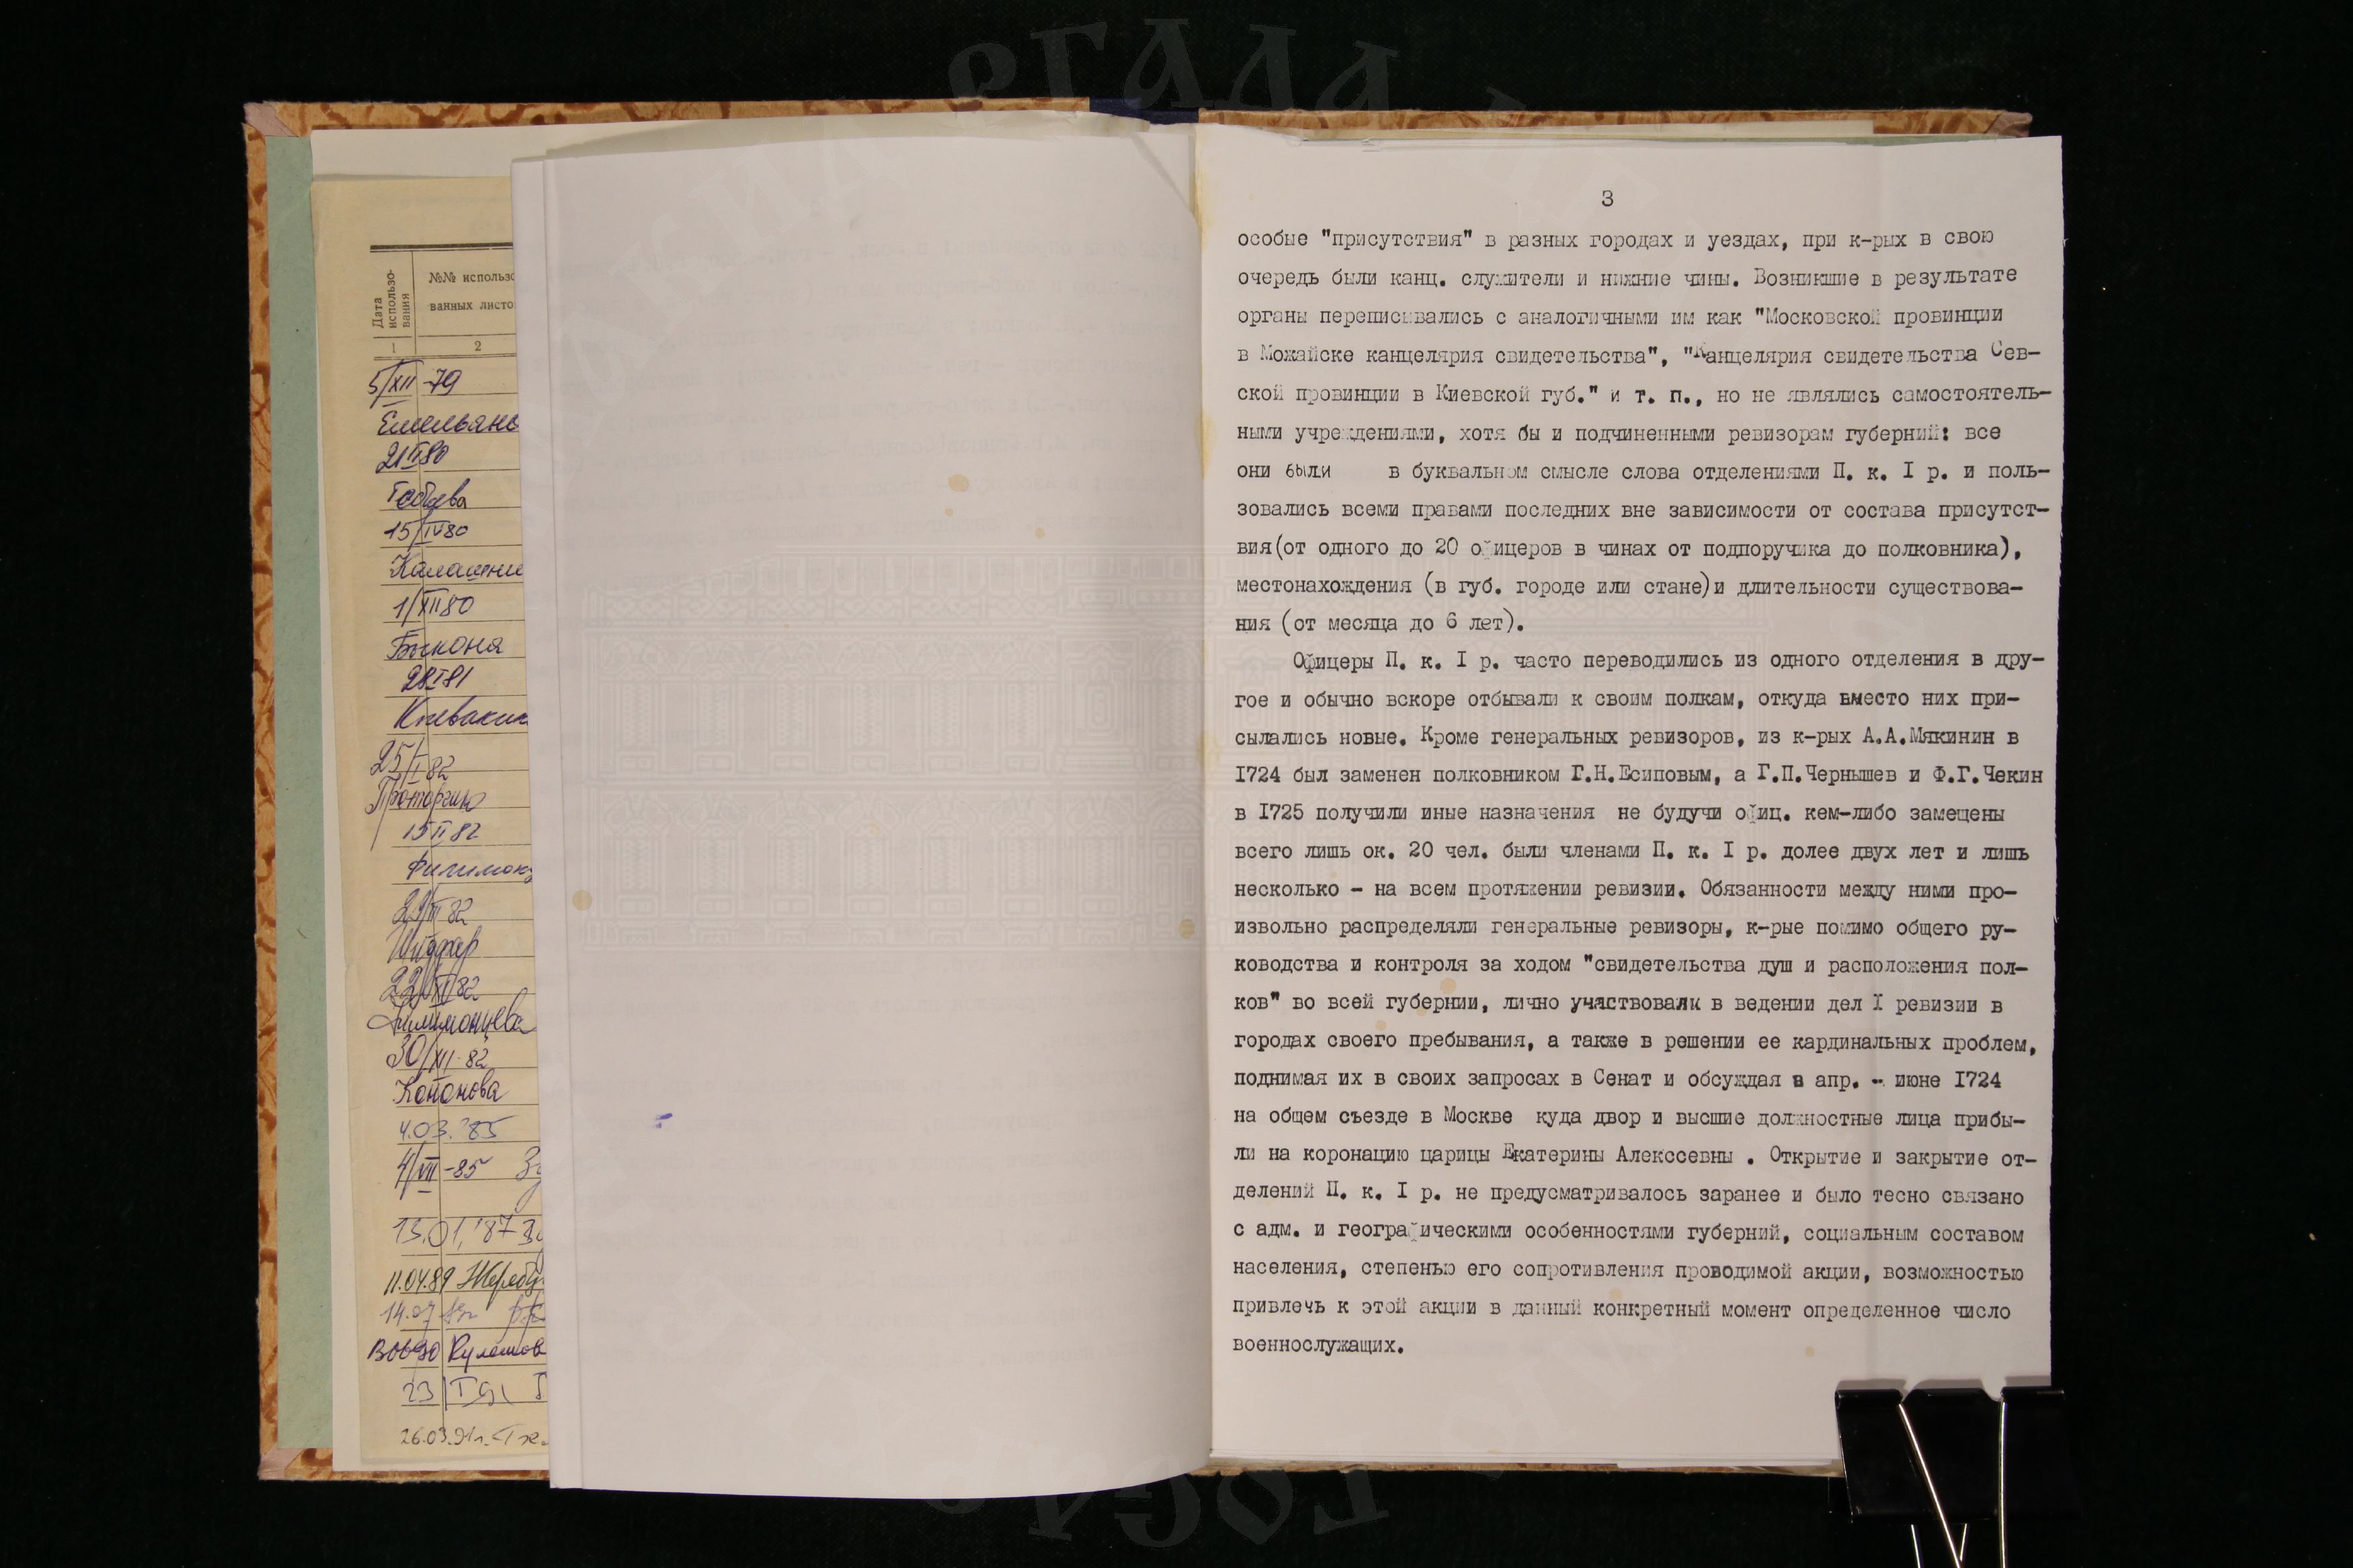 РГАДА
Дата использо-вания
№№ использо
ванных листо
1
2
5/XII-79
21 II 80
15/IV 80
1/XII 80
Быконя
28 I 81
25/I 82
15 II 82
22/XI 82
30/XII-82
Кононова
4.03.'85
4/VII-85
13.01.'87
11.04.89
Кулешов
26.03.91г.
3
особые "присутствия" в разных городах и уездах, при к-рых в свою
очередь были канц. служители и нижние чины. Возникшие в результате
органы переписывались с аналогичными им как "Московской провинции
в Можайске канцелярия свидетельства", "Канцелярия свидетельства Сев-
ской провинции в Киевской губ." и т. п., но не являлись самостоятель-
ными учреждениями, хотя бы и подчиненными ревизорам губерний: все
они были в буквальном смысле слова отделениями П. к. I р. и поль-
зовались всеми правами последних вне зависимости от состава присутст-
вия(от одного до 20 офицеров в чинах от подпоручика до полковника),
местонахождения (в губ. городе или стане)и длительности существова-
ния (от месяца до 6 лет).
Офицеры П. к. I р. часто переводились из одного отделения в дру-
гое и обычно вскоре отбывали к своим полкам, откуда вместо них при-
сылались новые. Кроме генеральных ревизоров, из к-рых А.А.Мякинин в
I724 был заменен полковником Г.Н.Есиповым, а Г.П.Чернышев и Ф.Г.Чекин
в I725 получили иные назначения не будучи офиц. кем-либо замещены
всего лишь ок. 20 чел. были членами П. к. I р. долее двух лет и лишь
несколько - на всем протяжении ревизии. Обязанности между ними про-
извольно распределяли генеральные ревизоры, к-рые помимо общего ру-
ководства и контроля за ходом "свидетельства душ и расположения пол-
ков" во всей губернии, лично участвовали в ведении дел I ревизии в
городах своего пребывания, а также в решении ее кардинальных проблем,
поднимая их в своих запросах в Сенат и обсуждая в апр. - июне I724
на общем съезде в Москве куда двор и высшие должностные лица прибы-
ли на коронацию царицы Екатерины Алексеевны . Открытие и закрытие от-
делений П. к. I р. не предусматривалось заранее и было тесно связано
с адм. и географическими особенностями губерний, социальным составом
населения, степенью его сопротивления проводимой акции, возможностью
привлечь к этой акции в данный конкретный момент определенное число
военнослужащих.